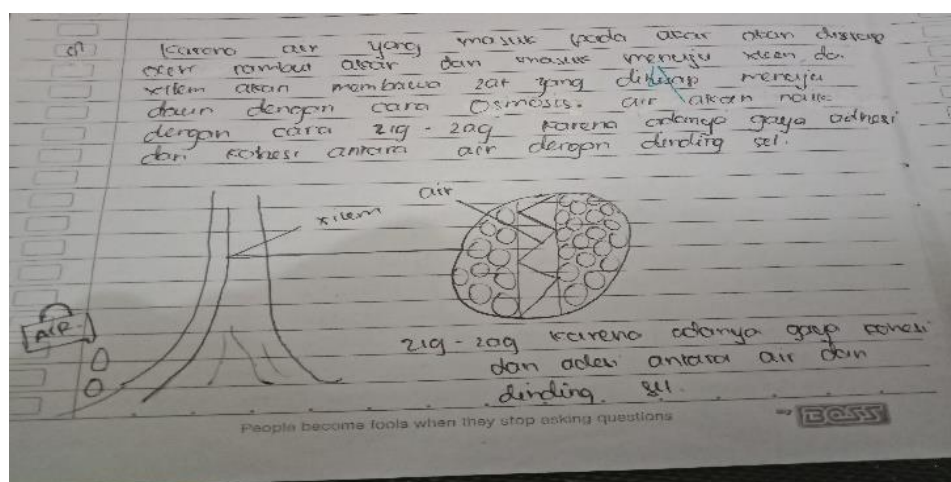 Karena air yang masuk pada akar akan diserap
oleh rambut akar dan masuk menuju xilem dan
xilem akan membawa zat yang diserap menuju
daun dengan cara Osmosis. air akan naik
dengan cara zig - zag karena adanya gaya adhesi
dan kohesi antara air dengan dinding sel.
air
xilem
AIR
zig - zag karena adanya gaya kohesi
dan adesi antara air dan
dinding sel.
People become fools when they stop asking questions
BOSS